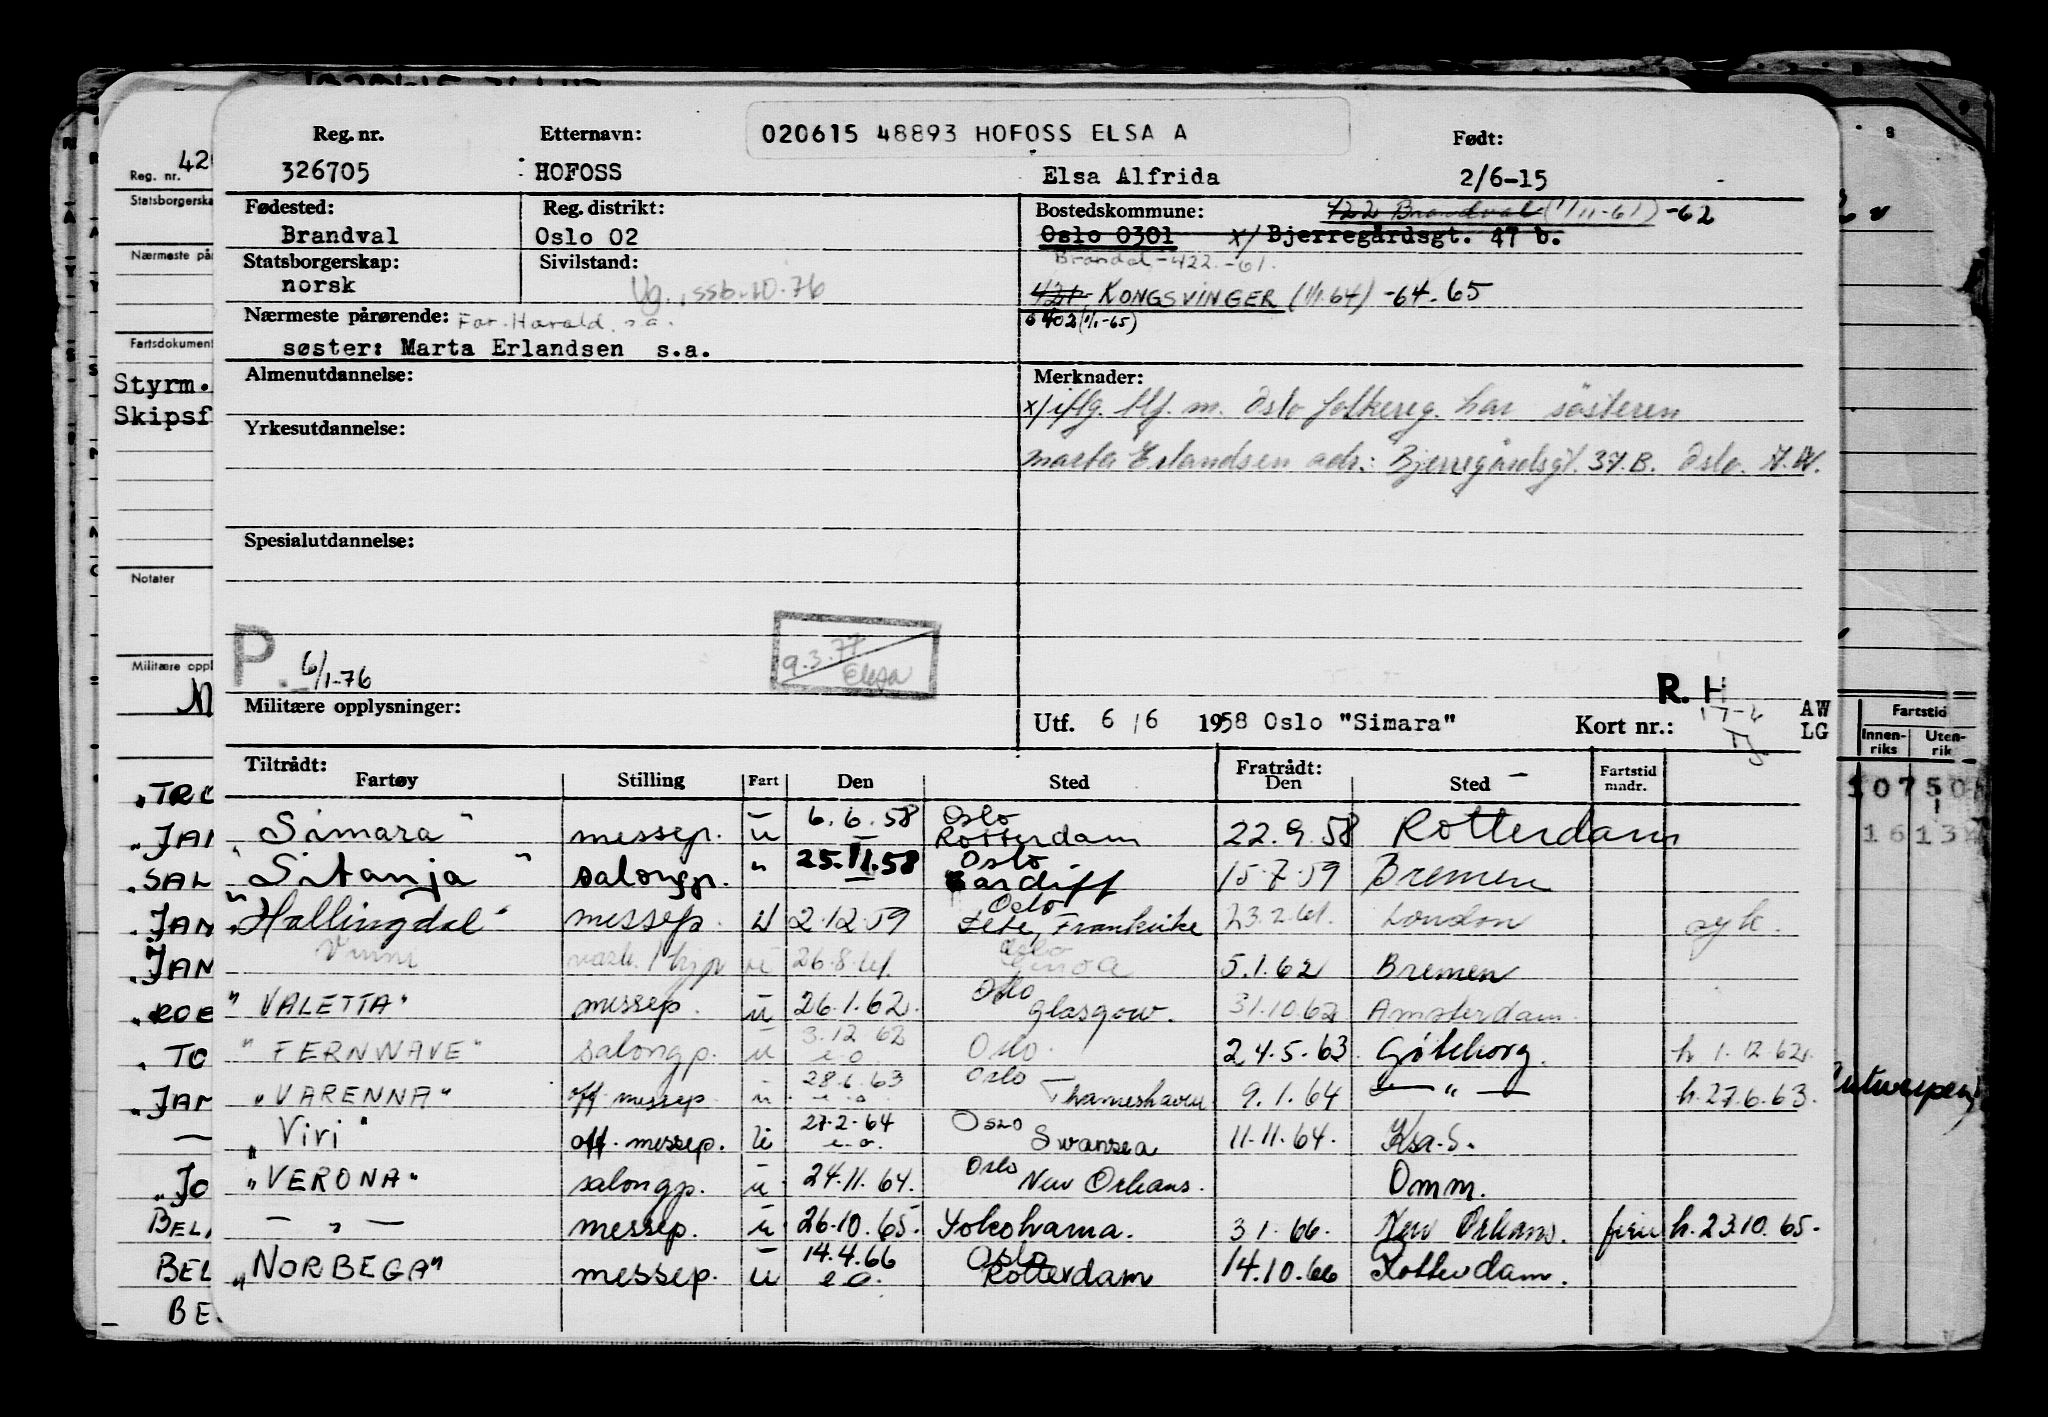 020615 48893 HOFOSS ELSA A
Reg. nr. Etternavn: Født:
326705 HOFOSS Elsa Alfrida 2/6-15
Fødested: Reg. distrikt: Bostedskommune: 422 Brandval (1/11-61) -62
Brandval Oslo 02 Oslo 0301 x/ Bjerregårdsgt. 47 b.
Statsborgerskap: Sivilstand: Brandal -422 -61.
norsk Ug., ssb-10-76 KONGSVINGER (1/1 64) -64-65
Nærmeste pårørende: Far Harald s.a. 0402 (1/1-65)
søster: Marta Erlandsen s.a.
Almenutdannelse: Merknader:
x/ iflg. tlf. m. Oslo folkereg. har søsteren
Yrkesutdannelse:
Marta Erlandsen adr.: Bjerregårdsgt. 37.B. Oslo.
Spesialutdannelse:
P. 6/1-76
9.3.77
R. H
Militære opplysninger: Utf. 6/6 1958 Oslo "Simara" Kort nr.: AW
LG
Tiltrådt: Fratrådt:
Fartøy Stilling Fart Den Sted Den Sted Fartstid mndr.
"Simara" messep. u 6.6.58 Oslo Rotterdam 22.9.58 Rotterdam
"Sitanja" salongp. " 25.11.58 Oslo Cardiff 15.7.59 Bremen
"Hallingdal" messep. u 2.12.59 Oslo Sete, Frankrike 23.2.61 London syk.
26.8.61 Oslo Genoa 5.1.62 Bremen
"VALETTA" messep. u 26.1.62 Oslo Glasgow. 31.10.62 Amsterdam.
"FERNWAVE" salongp. u 3.12 62 e.o. Oslo. 24.5.63. Göteborg. h 1.12.62.
"VARENNA" off. messep. u 28.6.63 e.o. Oslo Thameshaven 9.1.64 — " — h.27.6.63.
"Viri" off. messep. u 27.2.64 e.o. Oslo Swansea 11.11.64. Kra.S.
"VERONA" salongp. u 24.11.64. Oslo New Orleans. Omm.
— " — messep. u 26.10.65. Yokohama. 3 1.66. New Orleans. ferie h.23.10.65.
"NORBEGA" messep. u 14.4.66 e.o. Oslo Rotterdam 14.10.66 Rotterdam.
Reg. nr. 42
Statsborgerska
Nærmeste på
Fartsdokument
Styrm.
Skipsf
Notater
Militære oppl
"TRO
"JAN
"SAL
"JAN
"JAN
"TO
"JAN
"JO
BEL
BEL
BE
Fartstid
Innen-riks Uten-rik
Antwerpen